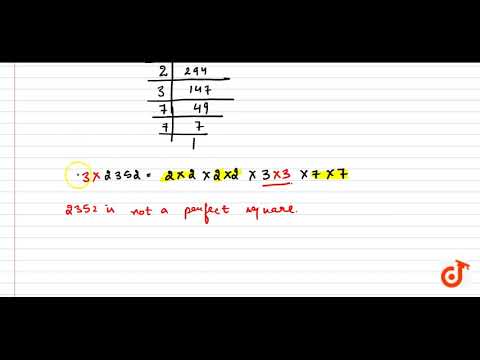 2 294
3 147
7 49
7 7
1
3×2352= 2×2 ×2×2 ×3×3 ×7×7
2352 is not a perfect square.